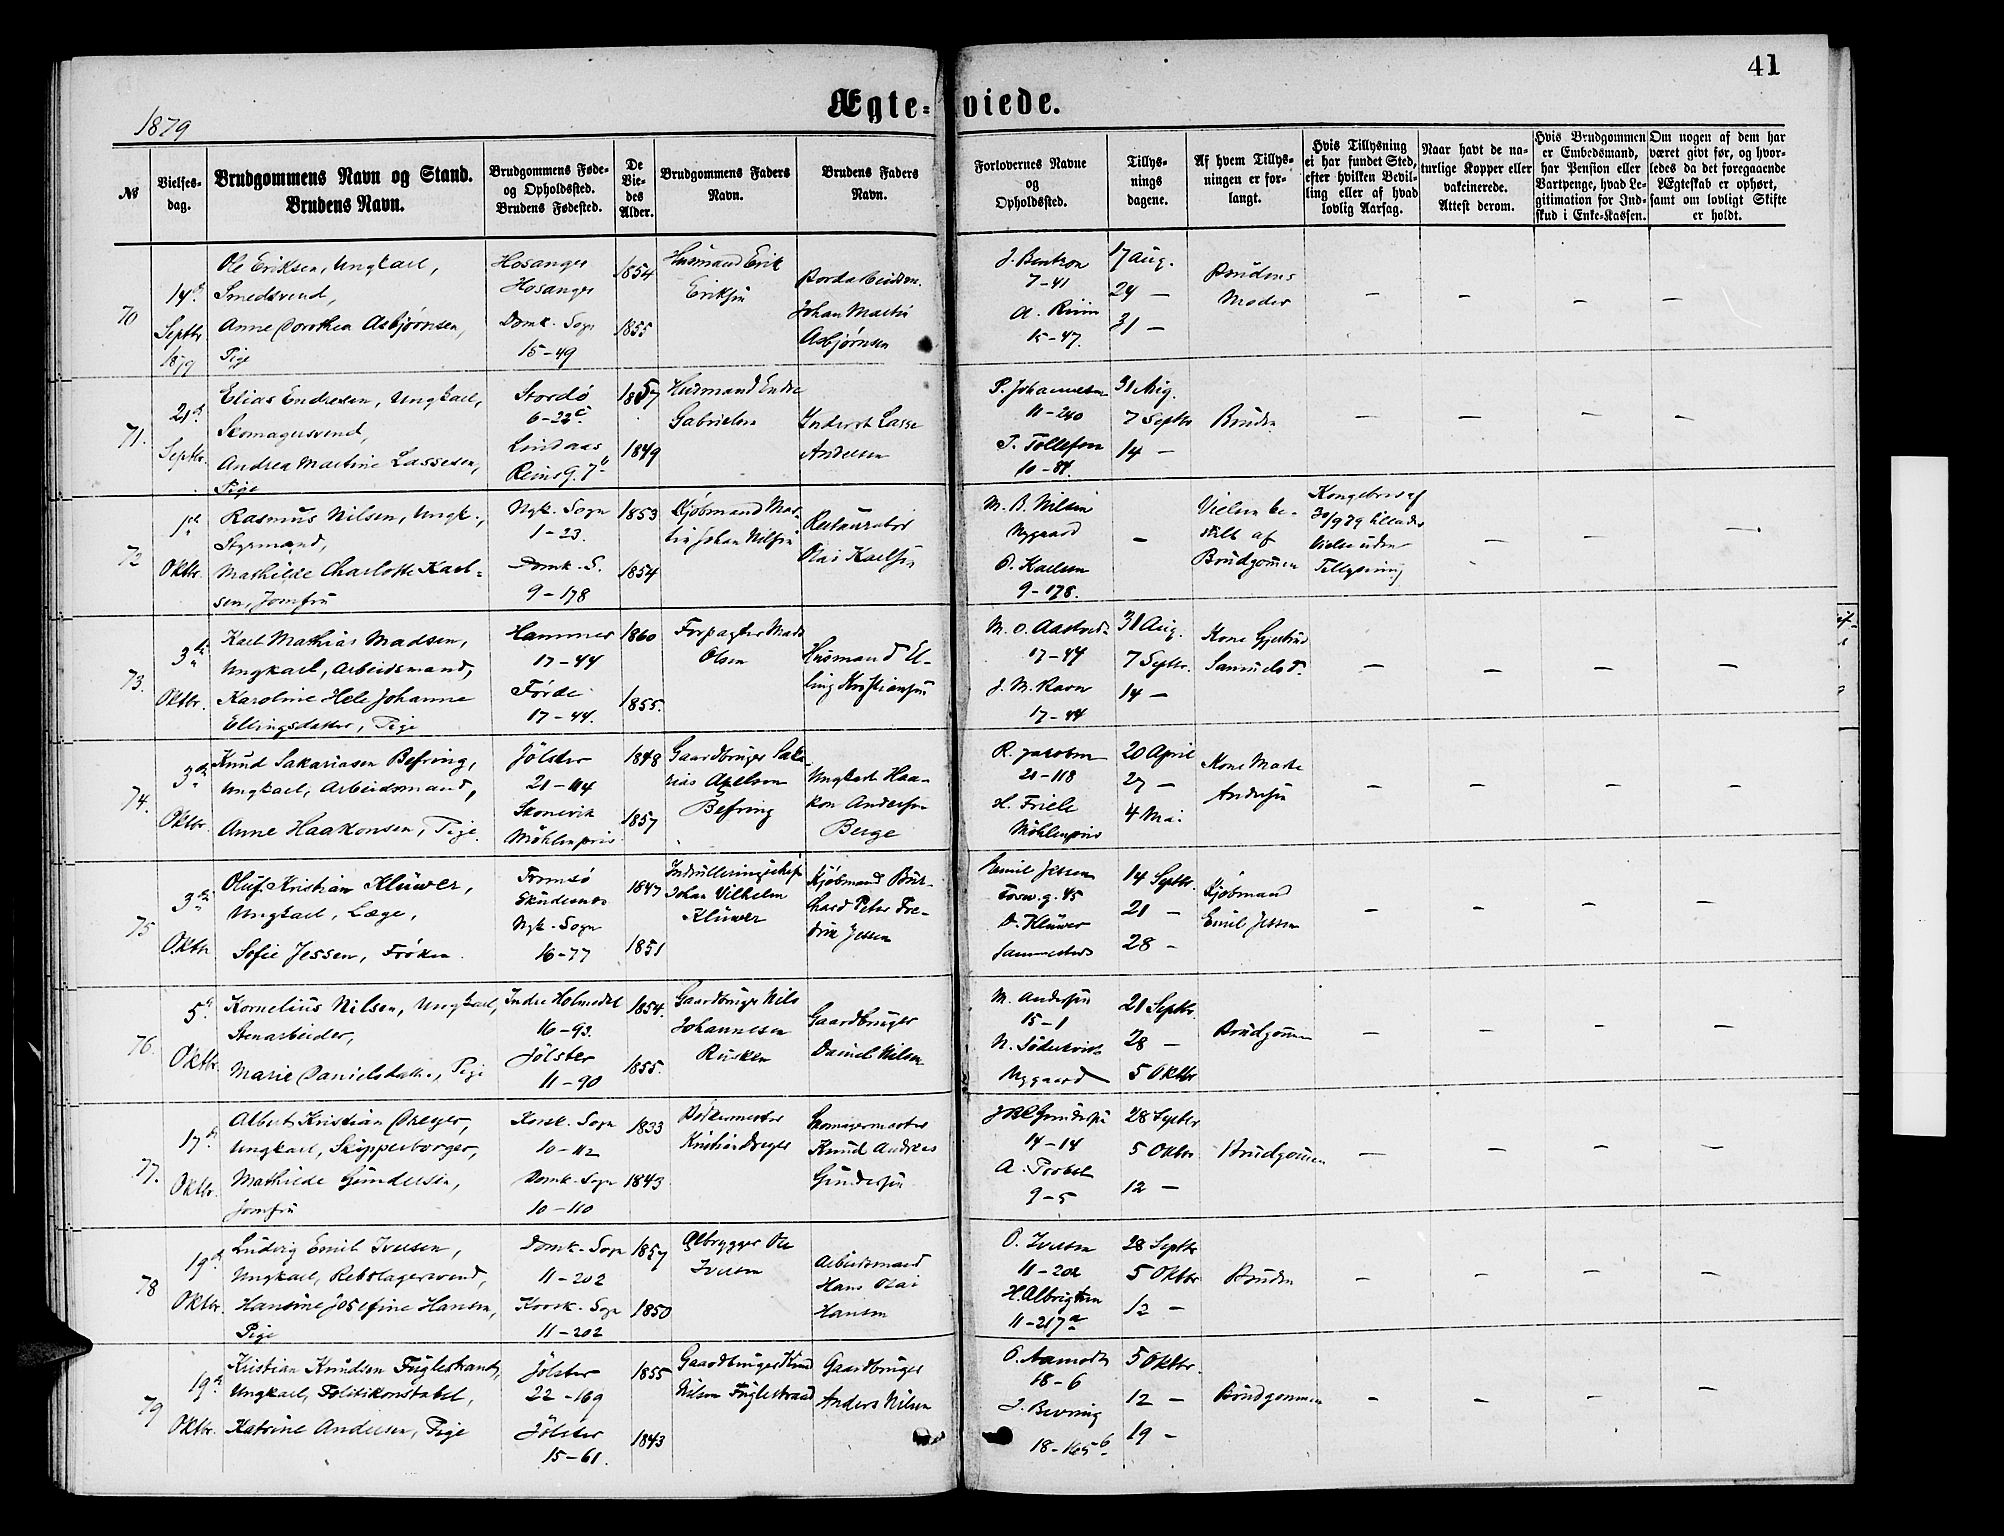 41
Ægte-viede.
1879
№
Vielses-
dag.
Brudgommens Navn og Stand.
Brudens Navn.
Brudgommens Føde-
og Opholdssted.
Brudens Fødested.
De
Vie-
des
Alder.
Brudgommens Faders
Navn.
Brudens Faders
Navn.
Forlovernes Navne
og
Opholdssted.
Tillys-
nings
dagene.
Af hvem Tillys-
ningen er for-
langt.
Hvis Tillysning
ei har fundet Sted,
efter hvilken Bevil-
ling eller af hvad
lovlig Aarsag.
Naar havt de na-
turlige Kopper eller
vakcinerede.
Attest derom.
Hvis Brudgommen
er Embedsmand,
har Pension eller
Vartpenge, hvad Le-
gitimation for Ind-
skud i Enke-Kassen.
Om nogen af dem har
været givt før, og hvor-
ledes da det foregaaende
Ægteskab er ophørt,
samt om lovligt Skifte
er holdt.
70
14de
Septbr
1879
Ole Eriksen, Ungkarl,
Smedsvend,
Anne Dorothea Asbjørnsen,
Pige
Hosanger
Hosanger
Domk. Sogn
15-49
1854
1855
Husmand Erik
Eriksen
Johan Martin
Asbjørnsen
J. Bentzon
7-41
15-47.
17 Aug.
24 —
31 —
Brudens
Moder
71.
21de
Septbr.
Elias Endresen, Ungkarl,
Skomagersvend,
Andrea Martine Lassesen,
Pige
Stordø
6-22c
Lindaas
Reins G. 7b
1857
1849
Husmand Endre
Gabrielsen
Inderst Lasse
Andersen
P. Johannesen
11-240
T. Tollefsen
10-84.
31 Aug.
7 Septbr
14 —
Bruden
72
1ste
Oktbr.
Rasmus Nilsen, Ungk.,
Styrmand,
Mathilde Charlotte Karl-
sen, Jomfru
Nyk. Sogn
1-23.
Domk. S.
9-178
1853
1854
Kjøbmand Mar-
tin Johan Nilsen
Restauratør
Olai Karlsen
M. B. Nilsen
Nygaard
O. Karlsen
9-178.
—
Vielsen be-
stilt af
Brudgommen
Kongebrev af
30/9 79 tillader
Vielse uden
Tillysning
73.
3die
Oktbr.
Karl Mathias Madsen,
Ungkarl, Arbeidsmand,
Karoline Hele Johanne
Ellingsdatter, Pige
Hammer
17-44
Førde
17-44.
1860
1855.
Forpagter Mads
Olsen
Husmand El-
ling Kristiansen
17-44
J. M. Ravn
17-44
31 Aug.
7 Septbr.
14 —
Kone Gjertrud
Samuelsd.
74.
3die
Oktbr.
Knud Sakariasen Befring,
Ungkarl, Arbeidsmand,
Anne Haakonsen, Pige.
Jølster
21-114
Skonevik
Møhlenpris
1848
1857
Gaardbruger Saka-
rias Axelsen
Befring
Ungkarl Haa-
kon Andersen
Berge
R. Jacobsen
21-118
H. Friele
Møhlenpris
20 April
27 —
4 Mai
Kone Marte
Andersen
75
3die
Oktbr
Oluf Kristian Klüwer,
Ungkarl, Læge,
Sofie Jessen, Frøken.
Tromsø
Skudesnes
Nyk. Sogn
16-77
1847
1851
Indrulleringschef
Johan Vilhelm
Klüwer
Kjøbmand Bur-
chard Peter Fre-
drik Jessen
Emil Jessen
O. Klüwer
Sammesteds
14 Septbr.
21 —
28 —
Kjøbmand
Emil Jessen
76.
5te
Oktbr.
Kornelius Nilsen, Ungkarl,
Stenarbeider,
Marie Danielsdatter, Pige
Indre Holmedal
16-93.
Jølster
11-90
1854.
1855.
Gaardbruger Nils
Johannesen
Rusken
Gaardbruger
Daniel Nilsen
M. Andersen
15-1
Nygaard
21 Septbr.
28 —
5 Oktbr
Brudgommen
77.
17de
Oktbr.
Albert Kristian Dreyer,
Ungkarl, Skipperborger,
Mathilde Gundersen,
Jomfru
Korsk. Sogn
10-112
Domk. Sogn
10-110
1833
1843
Bødkermester
Kristian Dreyer
Skomagermester
Knud Andreas
Gundersen
14-14
9-5
28 Septbr
5 Oktbr
12 —
Brudgommen
78
19de
Oktbr.
Ludvig Emil Iversen,
Ungkarl, Rebslagersvend,
Hansine Josefine Hansen,
Pige
Domk. Sogn
11-202
Korsk. Sogn
11-202
1857
1850
Ølbrygger Ole
Iversen
Arbeidsmand
Hans Olai
Hansen
O. Iversen
11-202
H. Albrigtsen
11-217a
28 Septbr
5 Oktbr
12 —
Bruden
79
19de
Oktbr.
Kristian Knudsen Fuglestrand,
Ungkarl, Politikonstabel,
Katrine Andersen, Pige
Jølster
22-169
Jølster
15-61.
1855
1843
Gaardbruger Knud
Nilsen Fuglestrand
Gaardbruger
Anders Nilsen
O. Aamodt
18-6
J. Bevring
18-165b
5 Oktbr.
12 —
19 —
Brudgommen